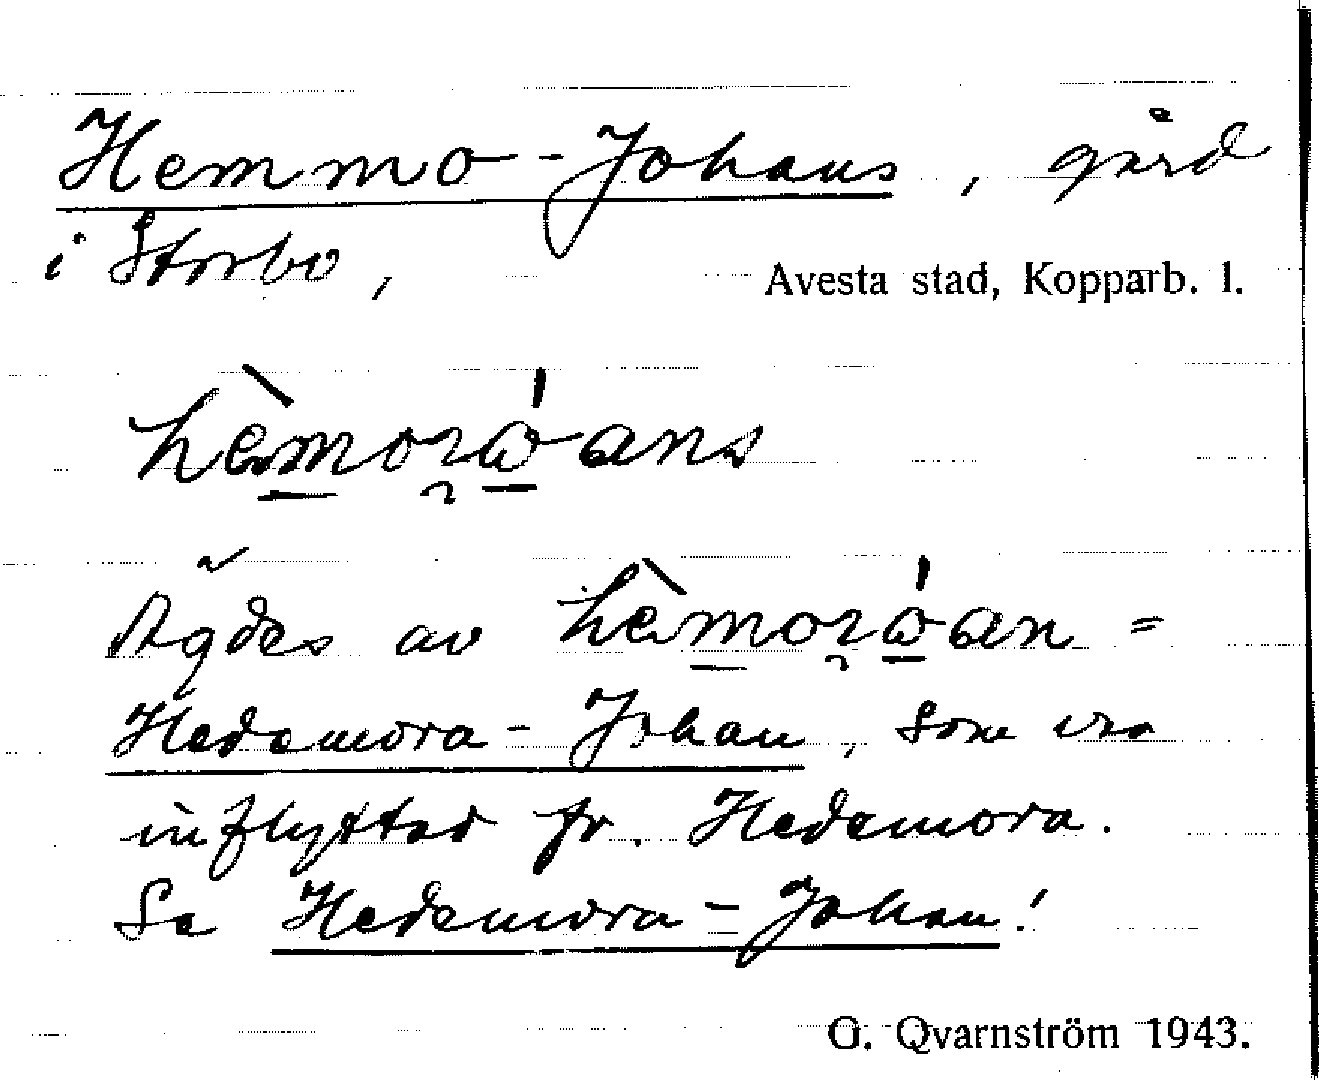 Hemmo-Johans, gård
i Storbo,
Avesta stad, Kopparb. l.
Ägdes av =
Hedemora-Johan, som var
inflyttad fr. Hedemora.
Se Hedemora-Johan!
G. Qvarnström 1943.